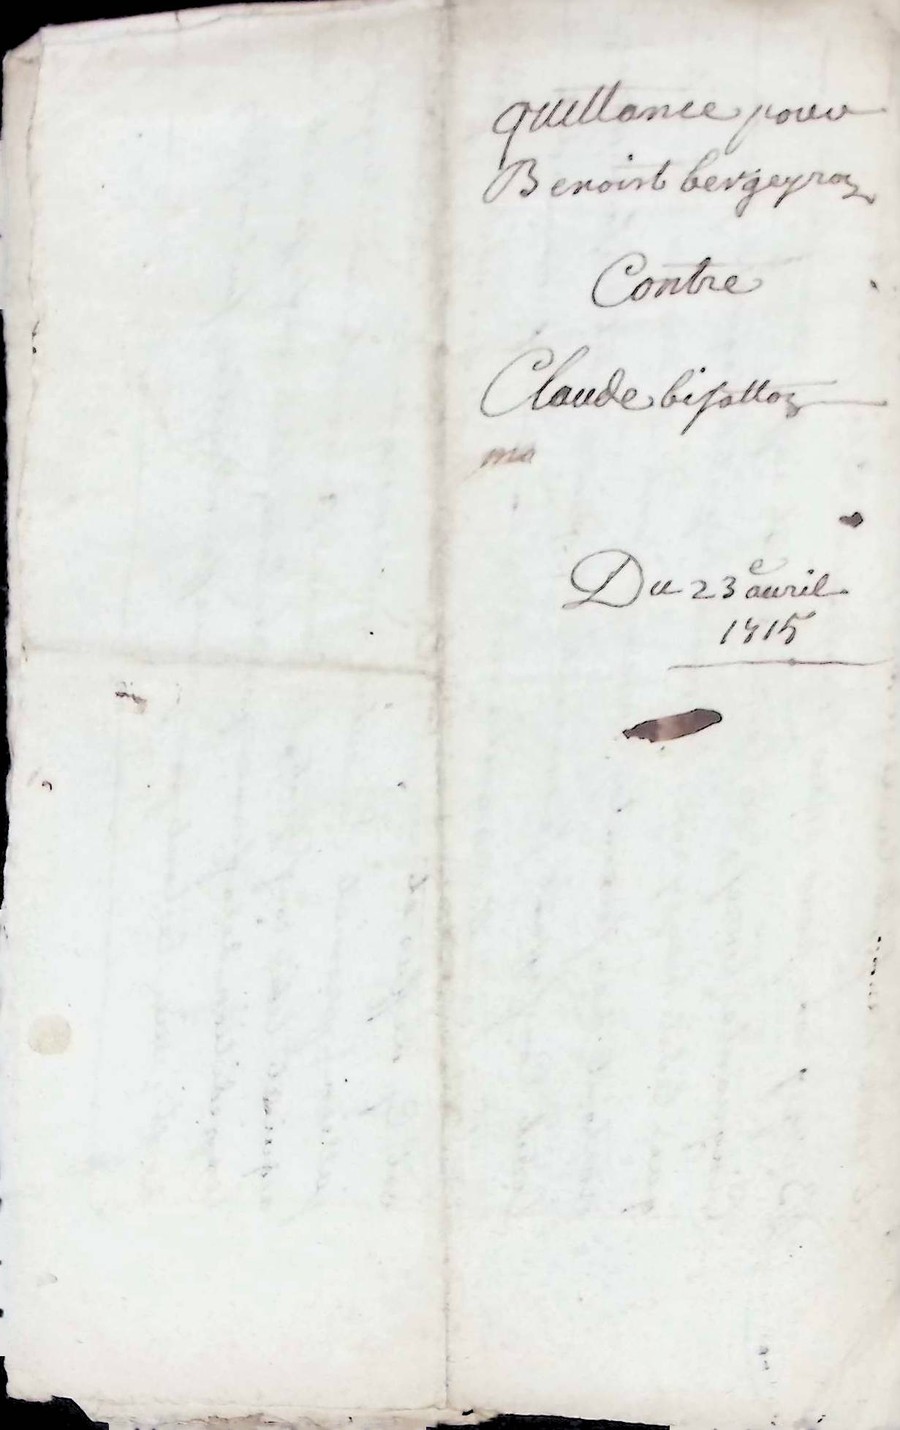 quittance pour
Benoist bergeyron
Contre
Claude bisallon
Du 23e avril
1715